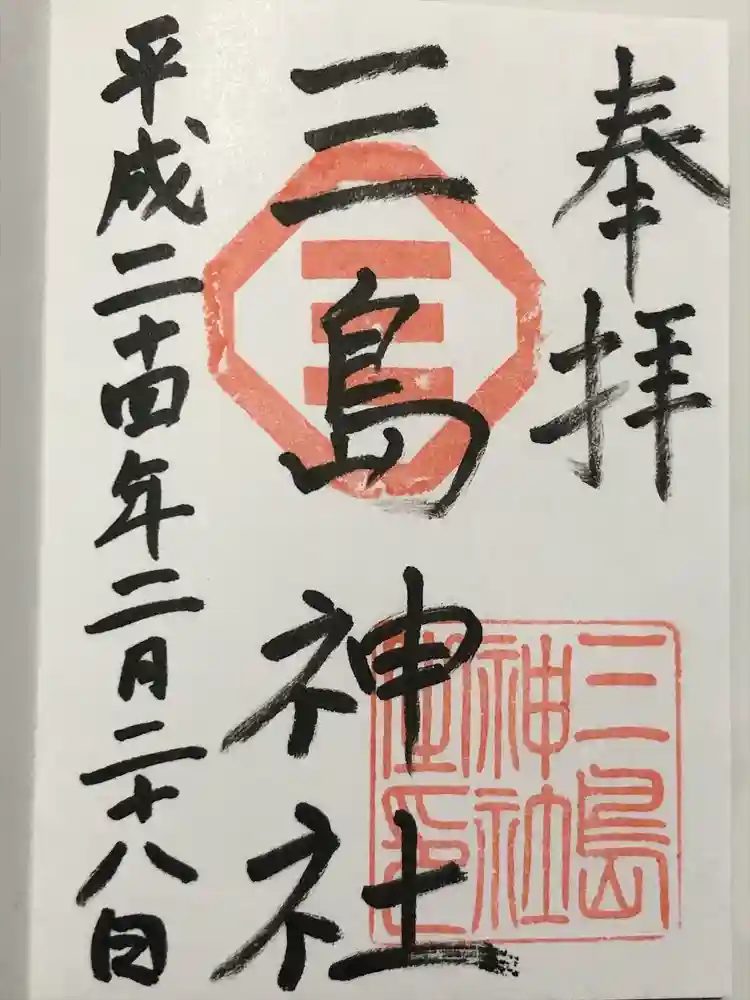 奉拝
三島神社
平成二十四年二月二十八日
三
三島
神社
御印